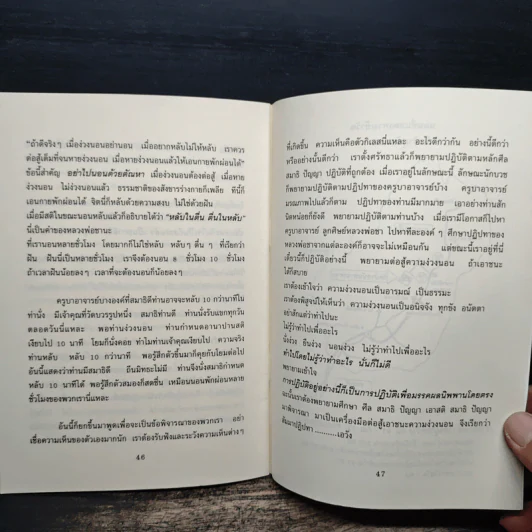 "ถ้าดีจริงๆ เมื่อง่วงนอนอย่านอน เมื่ออยากหลับไม่ให้หลับ เราควร
ต่อสู้เต็มที่จนหายง่วงนอน เมื่อหายง่วงนอนแล้วให้เอนกายพักผ่อนได้"
ข้อนี้สำคัญ อย่าไปนอนด้วยตัณหา เมื่อง่วงนอนต้องต่อสู้ เมื่อหาย
ง่วงนอน ไม่ง่วงนอนแล้ว ธรรมชาติของสังขารร่างกายก็เพลีย ทีนี้ก็
เอนกายพักผ่อนได้ จิตนี้ก็หลับด้วยความสงบ ไม่ใช่หลับด้วยฝัน
เมื่อมีสติในขณะนอนหลับแล้วก็อธิบายได้ว่า "หลับในตื่น ตื่นในหลับ"
นี่เป็นคำของหลวงพ่อชานะ
ที่เรานอนหลายชั่วโมง โดยมากก็ไม่ใช่หลับ หลับๆ ตื่น ๆ ที่เรียกว่า
ฝัน ฝันนี่เป็นหลายชั่วโมง เราจึงต้องนอน 8 ชั่วโมง 10 ชั่วโมง
ถ้าเวลาฝันน้อยลงๆ เวลาที่จะต้องนอนก็น้อยลงๆ
ครูบาอาจารย์บางองค์ที่สมาธิดีท่านอาจจะหลับ 10 กว่านาทีใน
ท่านั่ง มีเจ้าคุณที่วัดบวรรูปหนึ่ง สมาธิท่านดี ท่านนั่งรับแขกทุกวัน
ตลอดวันนี่แหละ พอท่านง่วงนอน ท่านกำหนดอานาปานสติ
เงียบไป 10 นาที โยมก็นั่งคอย ทำไมท่านเจ้าคุณเงียบไป ความจริง
ท่านหลับ หลับ 10 กว่านาที พอรู้สึกตัวขึ้นมาก็คุยกับโยมต่อไป
อันนี้แสดงว่าท่านมีสมาธิดี ถีนมิทธะไม่มี ท่านจึงนั่งสมาธิกำหนด
หลับ 10 นาทีได้ พอรู้สึกตัวสมองก็สดชื่น เหมือนนอนพักผ่อนหลาย
ชั่วโมงของพวกเรานี่แหละ
อันนี้ก็ยกขึ้นมาพูดเพื่อจะเป็นข้อพิจารณาของพวกเรา อย่า
เชื่อความเห็นของตัวเองมากนัก เราต้องรับฟังและระวังความเห็นต่างๆ
46
ที่เกิดขึ้น ความเห็นคือตัวกิเลสนี่แหละ อะไรดีกว่ากัน อย่างนี้ดีกว่า
หรืออย่างนั้นดีกว่า เราตั้งศรัทธาแล้วก็พยายามปฏิบัติตามหลักศีล
สมาธิ ปัญญา ปฏิบัติที่ถูกต้อง เมื่อเราอยู่ในลักษณะนี้ ลักษณะนักบวช
ก็พยายามปฏิบัติตามปฏิปทาของครูบาอาจารย์บ้าง ครูบาอาจารย์
มรณภาพไปแล้วก็ตาม ปฏิปทาของท่านมีมากมาย เอาอย่างท่านสัก
นิดหน่อยก็ยังดี พยายามปฏิบัติตามท่านบ้าง เมื่อเรามีโอกาสก็ไปหา
ครูบาอาจารย์ ลูกศิษย์หลวงพ่อชา ไปหาทีละองค์ๆ ศึกษาปฏิปทาของ
หลวงพ่อชาจากแต่ละองค์ก็อาจจะไม่เหมือนกัน แต่ขณะนี้เราอยู่ที่นี่
เดี๋ยวนี้ก็ปฏิบัติอย่างนี้ พยายามต่อสู้ความง่วงนอน ถ้าเอาชนะ
ได้ก็สบาย
เราต้องเข้าใจว่า ความง่วงนอนเป็นอารมณ์ เป็นธรรมะ
เราต้องพิสูจน์ให้เห็นว่า ความง่วงนอนเป็นอนิจจัง ทุกขัง อนัตตา
อย่าสักแต่ว่าทำไปนะ
ไม่รู้ว่าทำไปเพื่ออะไร
นั่งง่วง ยืนง่วง นอนง่วง ไม่รู้ว่าทำไปเพื่ออะไร
ทำไปโดยไม่รู้ว่าทำอะไร นั้นก็ไม่ดี
พยายามเข้าใจ
การปฏิบัติอยู่อย่างนี้ก็เป็นการปฏิบัติเพื่อมรรคผลนิพพานโดยตรง
ฉะนั้นเราต้องพยายามศึกษา ศีล สมาธิ ปัญญา เอาสติ สมาธิ ปัญญา
มาพิจารณา มาเป็นเครื่องมือต่อสู้เอาชนะความง่วงนอน จึงเรียกว่า
สัมมาปฏิปทา ..........เอวัง
47